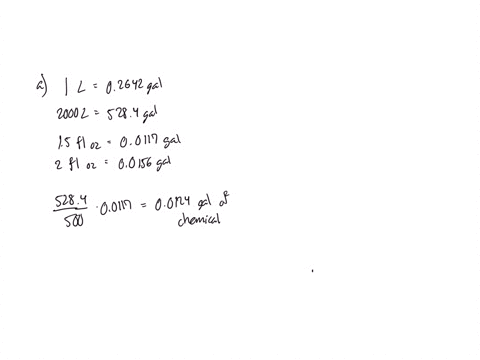 a) 1 L = 0.2642 gal
2000 L = 528.4 gal
1.5 fl oz = 0.0117 gal
2 fl oz = 0.0156 gal
528.4/500 · 0.0117 = 0.0124 gal of
chemical